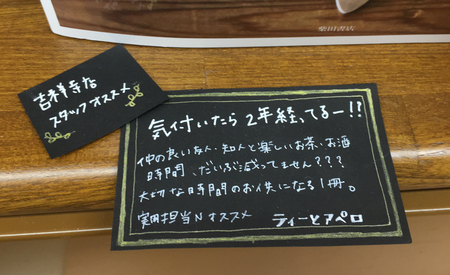 柴田書店
吉祥寺店
スタッフオススメ
気付いたら2年経ってるー!?
仲の良い友人・知人と楽しいお茶・お酒
時間、だいぶ減ってません???
大切な時間のお供になる1冊。
実用担当Nオススメ
ティーとアペロ